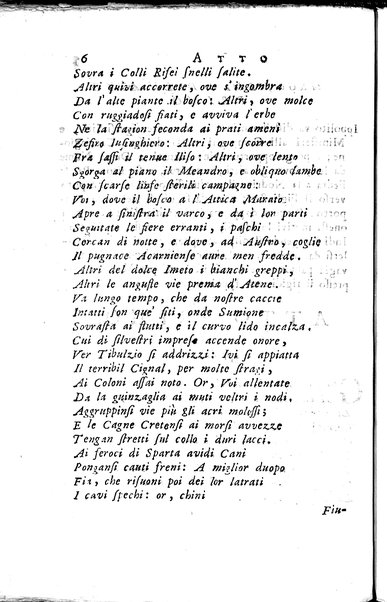 6 ATTO
Sovra i Colli Rifei ſnelli ſalite.
Altri quivi accorrete, ove s'ingombra
Da l'alte piante il boſco: Altri, ove molce
Con ruggiadoſi fiati, e avviva l'erbe
Ne la ſtagion feconda ai prati ameni
Zefiro luſinghiero: Altri, ove ſcorre
Fra ſaſſi il tenue Iliſo: Altri, ove lento
Sgorga al piano il Meandro, e obliquo lambe
Con ſcarſe linfe ſterili campagne:
Voi, dove il boſco a l'Attica Marato
Apre a ſiniſtra il varco, e da i lor parti
Seguitate le fiere erranti, i paſchi
Cercan di notte, e dove, ad Auſtro, coglie
Il pugnace Acarnienſe aure men fredde.
Altri del dolce Imeto i bianchi greppi,
Altri le anguſte vie prema d'Afene.
Va lungo tempo, che da noſtre caccie
Intatti ſon que' ſiti, onde Sumione
Sovraſta ai flutti, e il curvo lido incalza.
Cui di ſilveſtri impreſe accende onore,
Ver Tibulzio ſi addrizzi: Ivi ſi appiatta
Il terribil Cignal, per molte ſtragi,
Ai Coloni aſſai noto. Or, Voi allentate
Da la guinzaglia ai muti veltri i nodi.
Aggruppinſi vie più gli acri moloſſi;
E le Cagne Cretenſi ai morſi avvezze
Tengan ſtretti ſul collo i duri lacci.
Ai feroci di Sparta avidi Cani
Ponganſi cauti freni: A miglior duopo
Fia, che riſuoni poi dei lor latrati
I cavi ſpechi: or, chini
Fiu-